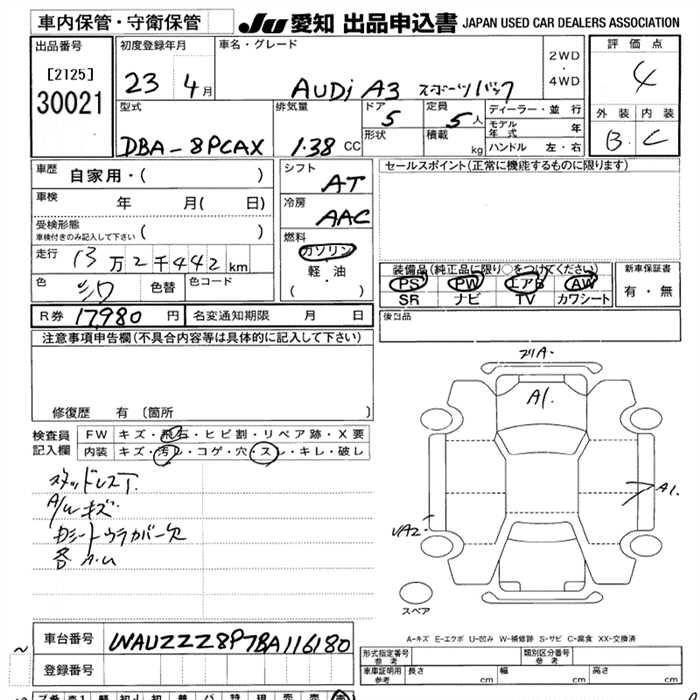 車内保管・守衛保管
JU 愛知 出品申込書 JAPAN USED CAR DEALERS ASSOCIATION
出品番号
[2125]
30021
初度登録年月
23 4月
車名・グレード
AUDi A3 スポーツバック
2WD
・
4WD
評価点
4
外装 内装
B C
型式
DBA-8PCAX
排気量
1.38 CC
ドア
5
形状
定員
5人
積載
kg
ディーラー・並行
モデル年式 年
ハンドル 左・右
車歴
自家用・( )
車検
年 月( 日)
受検形態
車検付きのみ記入して下さい ( )
走行
13万2千442km
色
シロ
色替
色コード
シフト
AT
冷房
AAC
燃料
ガソリン
軽・油
( ・ )
R券 17,980 円
名変通知期限 月 日
セールスポイント(正常に機能するものに限ります)
装備品(純正品に限り○をつけてください)
PS PW エアB AW
SR ナビ TV カワシート
新車保証書
有・無
後日品
注意事項申告欄(不具合内容等は具体的に記入して下さい)
修復歴 有 [箇所 ]
検査員
記入欄
FW キズ・飛石・ヒビ割・リペア跡・X要
内装 キズ・汚レ・コゲ・穴・スレ・キレ・破レ
スタッドレスT.
A/W キズ
カシートウラカバー欠
各 A.U
フリA-
A1.
A1.
UA2
スペア
A-キズ E-エクボ U-凹み W-補修跡 S-サビ C-腐食 XX-交換済
車台番号
WAUZZZ8P7BA116180
登録番号
形式指定番号
参考
類別区分番号
参考
車庫証明用
参考
長さ cm
幅 cm
高さ cm